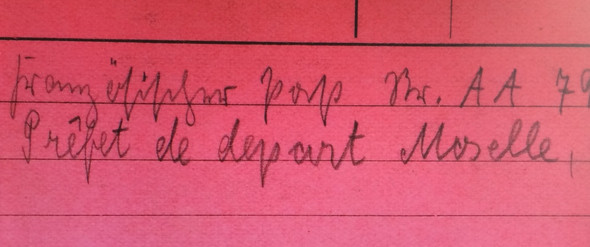 Französischer Paß Nr. AA 79
Prêfet de depart Moselle,